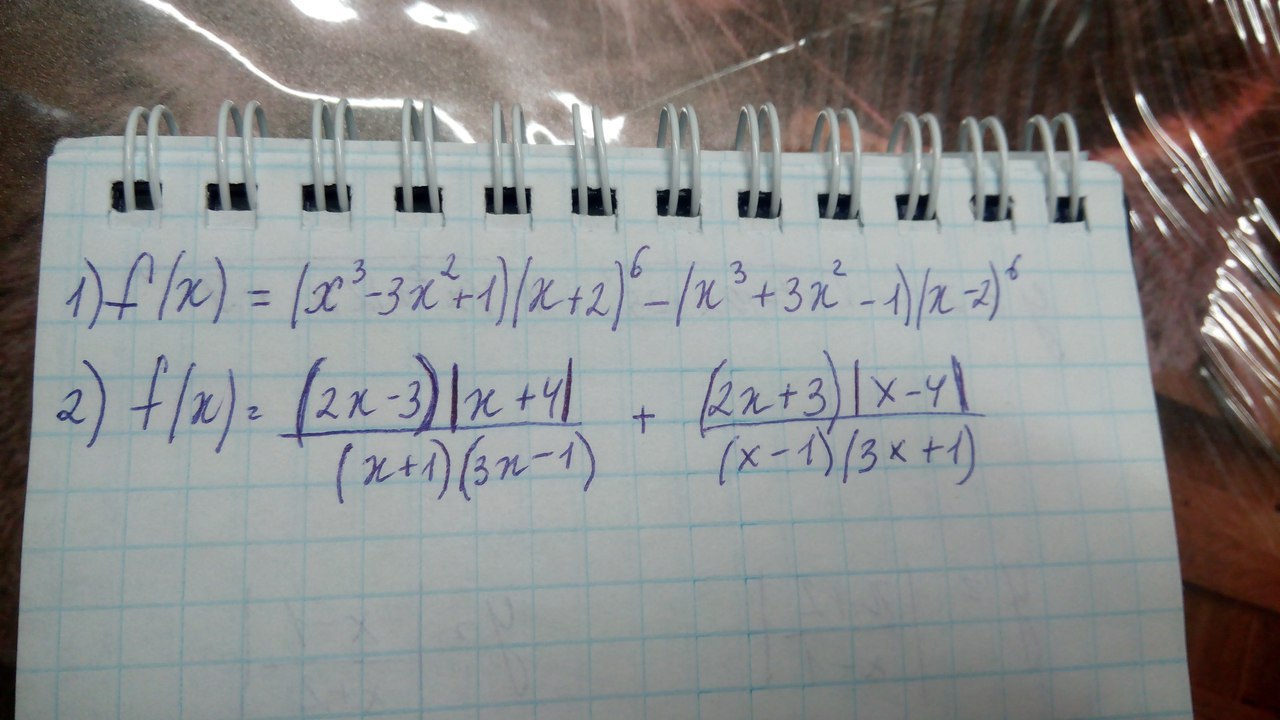 1) f(x) = (x³-3x²+1)(x+2)⁶ - (x³+3x²-1)(x-2)⁶
2) f(x) = ((2x-3)|x+4|)/((x+1)(3x-1)) + ((2x+3)|x-4|)/((x-1)(3x+1))